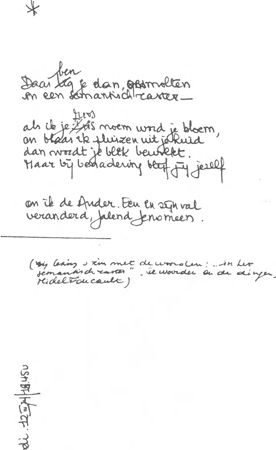 *
ben
Daar lag je dan, gesmolten
in een semantisch raster—
als ik je iris noem word je bloem,
en blaas ik pluizen uit je huid
dan wordt je blik bewolkt.
Maar bij benadering blijf jij jezelf
en ik de Ander. Een in zijn val
veranderd, falend fenomeen.
met de woorden: "in het
semantisch raster". de woorden en de dingen,
Michel Foucault)
di. 12